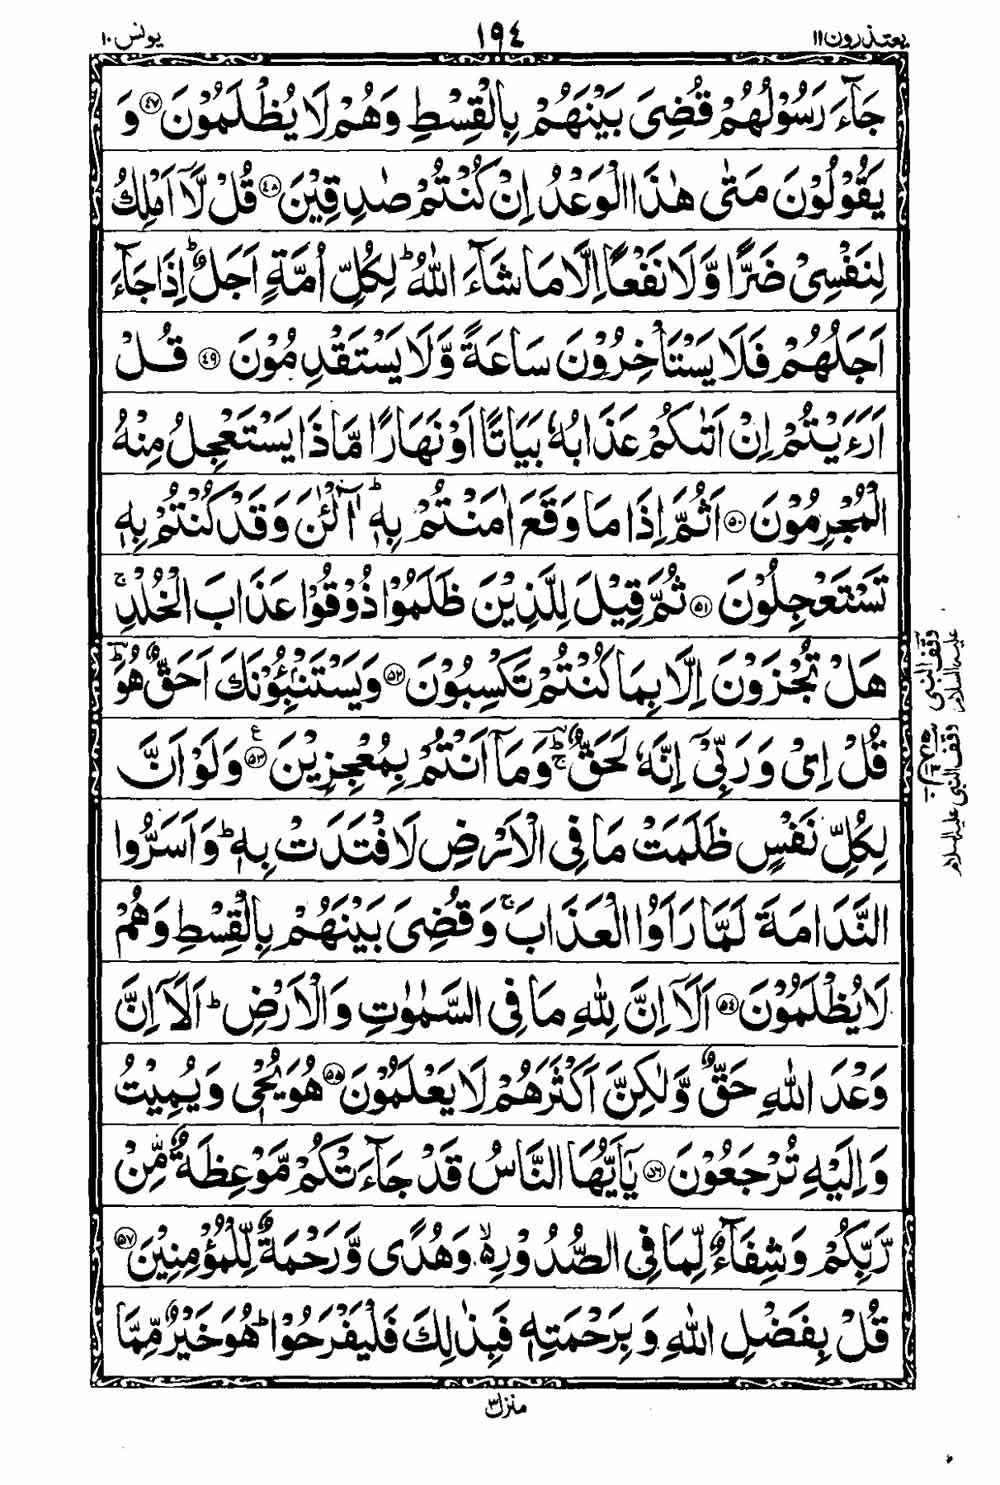 یعتذرون ۱۱
۱۹٤
یونس ۱۰
جَآءَ رَسُوۡلُهُمۡ قُضِىَ بَيۡنَهُمۡ بِالۡقِسۡطِ وَهُمۡ لَا يُظۡلَمُوۡنَ ﴿۴۷﴾ وَ
يَقُوۡلُوۡنَ مَتٰى هٰذَا الۡوَعۡدُ اِنۡ كُنۡتُمۡ صٰدِقِيۡنَ ﴿۴۸﴾ قُلْ لَّاۤ اَمۡلِكُ
لِنَفۡسِىۡ ضَرًّا وَّلَا نَفۡعًا اِلَّا مَا شَآءَ اللّٰهُ ؕ لِكُلِّ اُمَّةٍ اَجَلٌ ؕ اِذَا جَآءَ
اَجَلُهُمۡ فَلَا يَسۡتَاۡخِرُوۡنَ سَاعَةً وَّلَا يَسۡتَقۡدِمُوۡنَ ﴿۴۹﴾ قُلۡ
اَرَءَيۡتُمۡ اِنۡ اَتٰٮكُمۡ عَذَابُهٗ بَيَاتًا اَوۡ نَهَارًا مَّاذَا يَسۡتَعۡجِلُ مِنۡهُ
الۡمُجۡرِمُوۡنَ ﴿۵۰﴾ اَثُمَّ اِذَا مَا وَقَعَ اٰمَنۡتُمۡ بِهٖ ؕ آٰلۡـٰٔنَ وَقَدۡ كُنۡتُمۡ بِهٖ
تَسۡتَعۡجِلُوۡنَ ﴿۵۱﴾ ثُمَّ قِيۡلَ لِلَّذِيۡنَ ظَلَمُوۡا ذُوۡقُوۡا عَذَابَ الۡخُلۡدِ ۚ
هَلۡ تُجۡزَوۡنَ اِلَّا بِمَا كُنۡتُمۡ تَكۡسِبُوۡنَ ﴿۵۲﴾ وَيَسۡتَنۡۢبِــُٔوۡنَكَ اَحَقٌّ هُوَ ؕ
قُلۡ اِىۡ وَرَبِّىۡۤ اِنَّهٗ لَحَقٌّ ؔؕ وَمَاۤ اَنۡتُمۡ بِمُعۡجِزِيۡنَ ﴿۵۳﴾ ع وَلَوۡ اَنَّ
لِكُلِّ نَفۡسٍ ظَلَمَتۡ مَا فِى الۡاَرۡضِ لَافۡتَدَتۡ بِهٖ ؕ وَاَسَرُّوا
النَّدَامَةَ لَمَّا رَاَوُا الۡعَذَابَ ۚ وَقُضِىَ بَيۡنَهُمۡ بِالۡقِسۡطِ وَهُمۡ
لَا يُظۡلَمُوۡنَ ﴿۵۴﴾ اَلَاۤ اِنَّ لِلّٰهِ مَا فِى السَّمٰوٰتِ وَالۡاَرۡضِ ؕ اَلَاۤ اِنَّ
وَعۡدَ اللّٰهِ حَقٌّ وَّلٰـكِنَّ اَكۡثَرَهُمۡ لَا يَعۡلَمُوۡنَ ﴿۵۵﴾ هُوَ يُحۡىٖ وَيُمِيۡتُ
وَاِلَيۡهِ تُرۡجَعُوۡنَ ﴿۵۶﴾ يٰۤاَيُّهَا النَّاسُ قَدۡ جَآءَتۡكُمۡ مَّوۡعِظَةٌ مِّنۡ
رَّبِّكُمۡ وَشِفَآءٌ لِّمَا فِى الصُّدُوۡرِ ۙ وَهُدًى وَّرَحۡمَةٌ لِّلۡمُؤۡمِنِيۡنَ ﴿۵۷﴾
قُلۡ بِفَضۡلِ اللّٰهِ وَبِرَحۡمَتِهٖ فَبِذٰلِكَ فَلۡيَفۡرَحُوۡا ؕ هُوَ خَيۡرٌ مِّمَّا
وقف النبی
علیه السلام
وقف النبی علیه السلام
منزل ۳